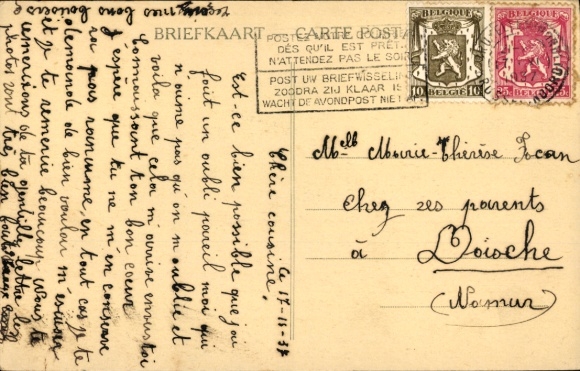 BRIEFKAART — CARTE POSTALE
POSTES
DÈS QU'IL EST PRÊT.
N'ATTENDEZ PAS LE SOIR
POST UW BRIEFWISSELING
ZOODRA ZIJ KLAAR IS
WACHT DE AVONDPOST NIET AF
BELGIQUE
10 BELGIË 10
BELGIQUE
25 BELGIË 25
Melle Marie-Thérèse
chez ses parents
à Doische
(Namur)
Ce 17-11-37
Chère cousine,
Est-ce bien possible que j'ai
fait un oubli pareil moi qui
n'aime pas qu'on m'oublie et
voilà que cela m'arrive envers toi
Connaissant ton bon coeur
j'espère que tu ne m'en conserve
ras pas rancune, en tout cas je te
demande de bien vouloir m'excuser
et je te remercie beaucoup. Nous te
remercions de ta gentille lettre les
photos sont très bien
mes bons baisers